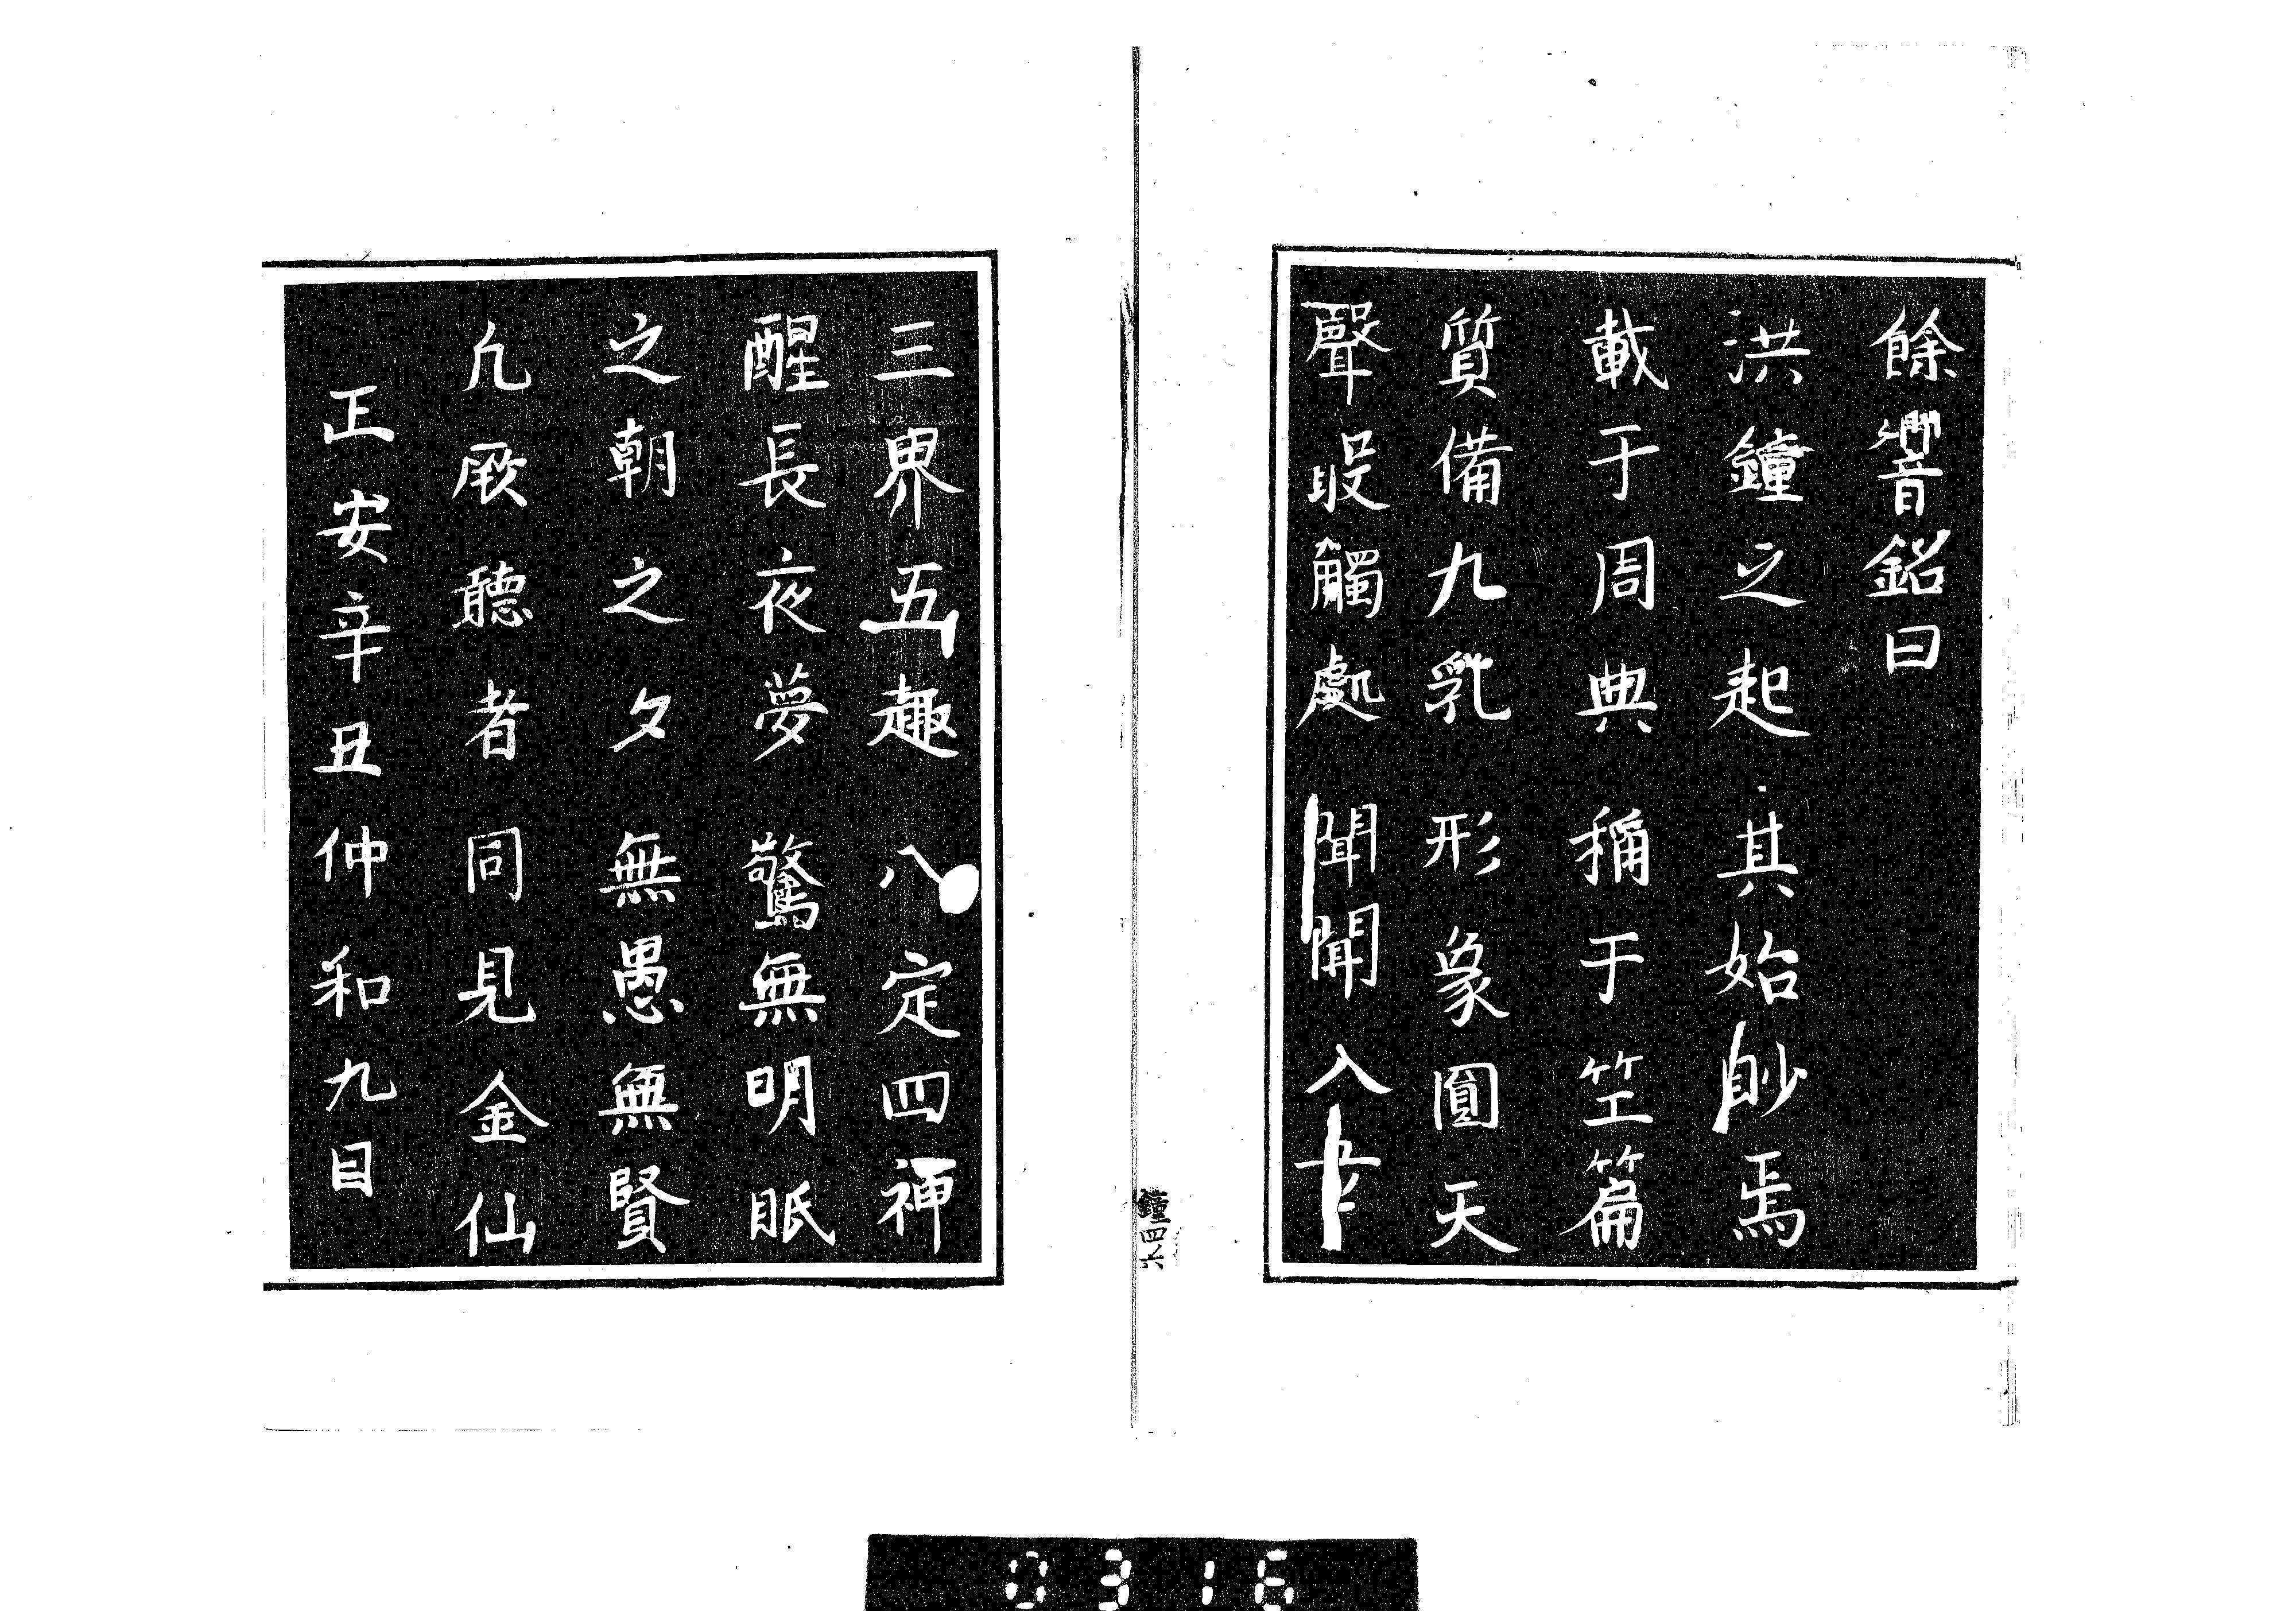 餘響銘曰
洪鐘之起 其始眇焉
載于周典 稱于竺篇
質備九乳 形象圓天
聲觸處 聞聞入
鐘四六
三界五趣 八定四禪
醒長夜夢 驚無明眠
之朝之夕 無愚無賢
凢厥聽者 同見金仙
正安辛丑仲和九日
0316